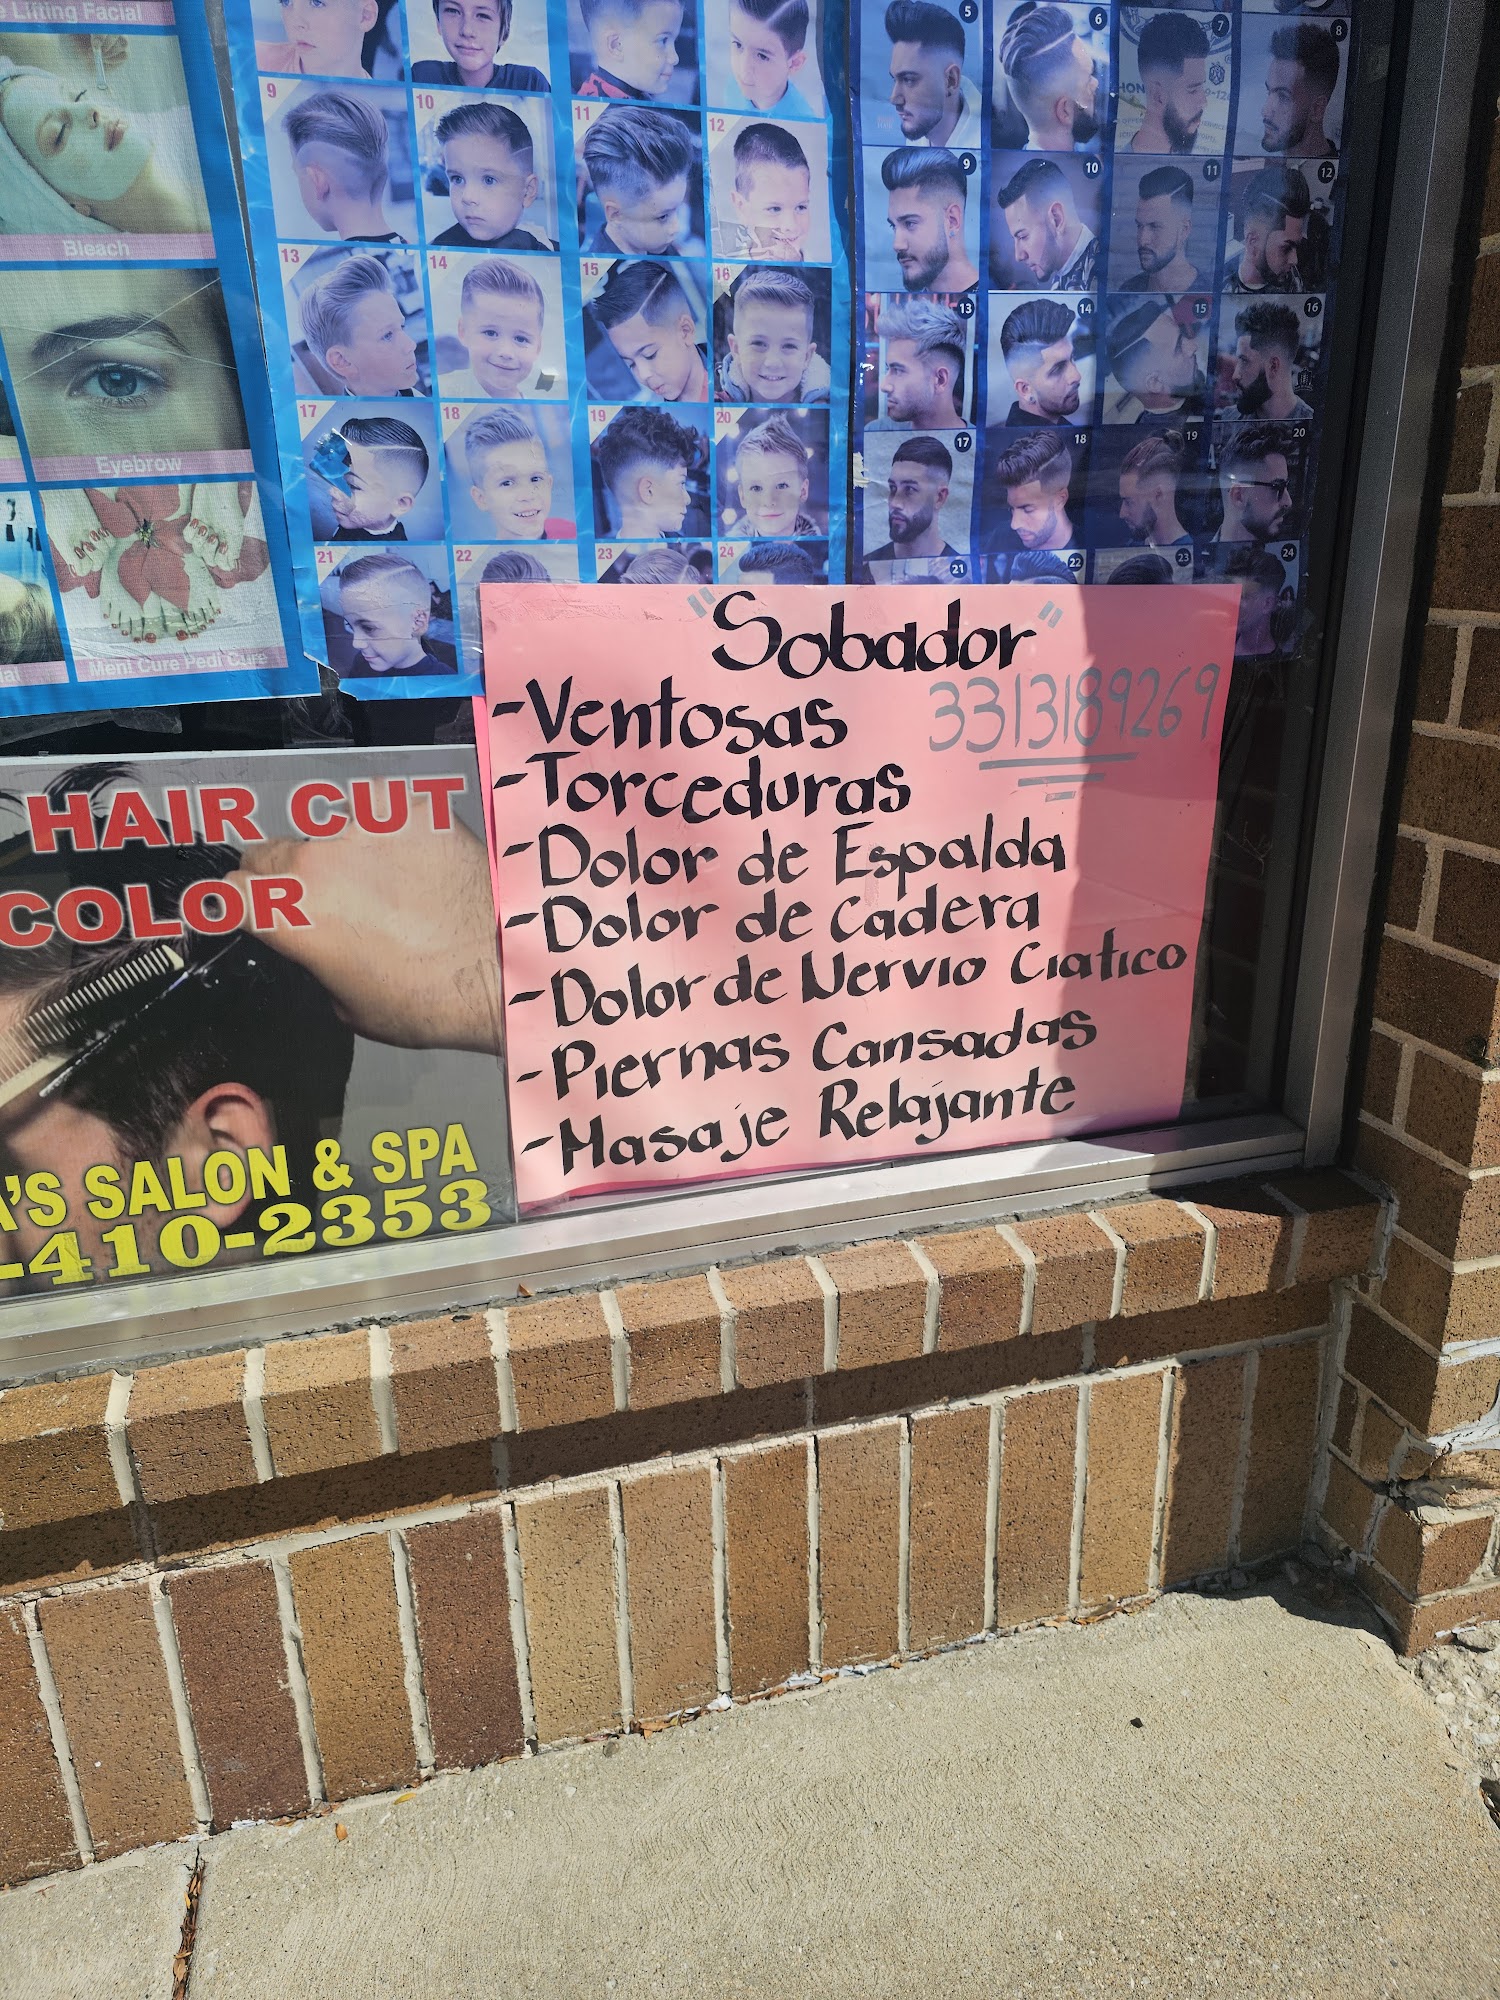 Lifting Facial
Bleach
Eyebrow
Meni Cure Pedi Cure
9 10 11 12
13 14 15 16
17 18 19 20
21 22 23 24
5 6 7 8
9 10 11 12
13 14 15 16
17 18 19 20
21 22 23 24
"Sobador"
3313189269
-Ventosas
-Torceduras
-Dolor de Espalda
-Dolor de Cadera
-Dolor de Nervio Ciatico
-Piernas Cansadas
-Masaje Relajante
HAIR CUT
COLOR
'S SALON & SPA
-410-2353